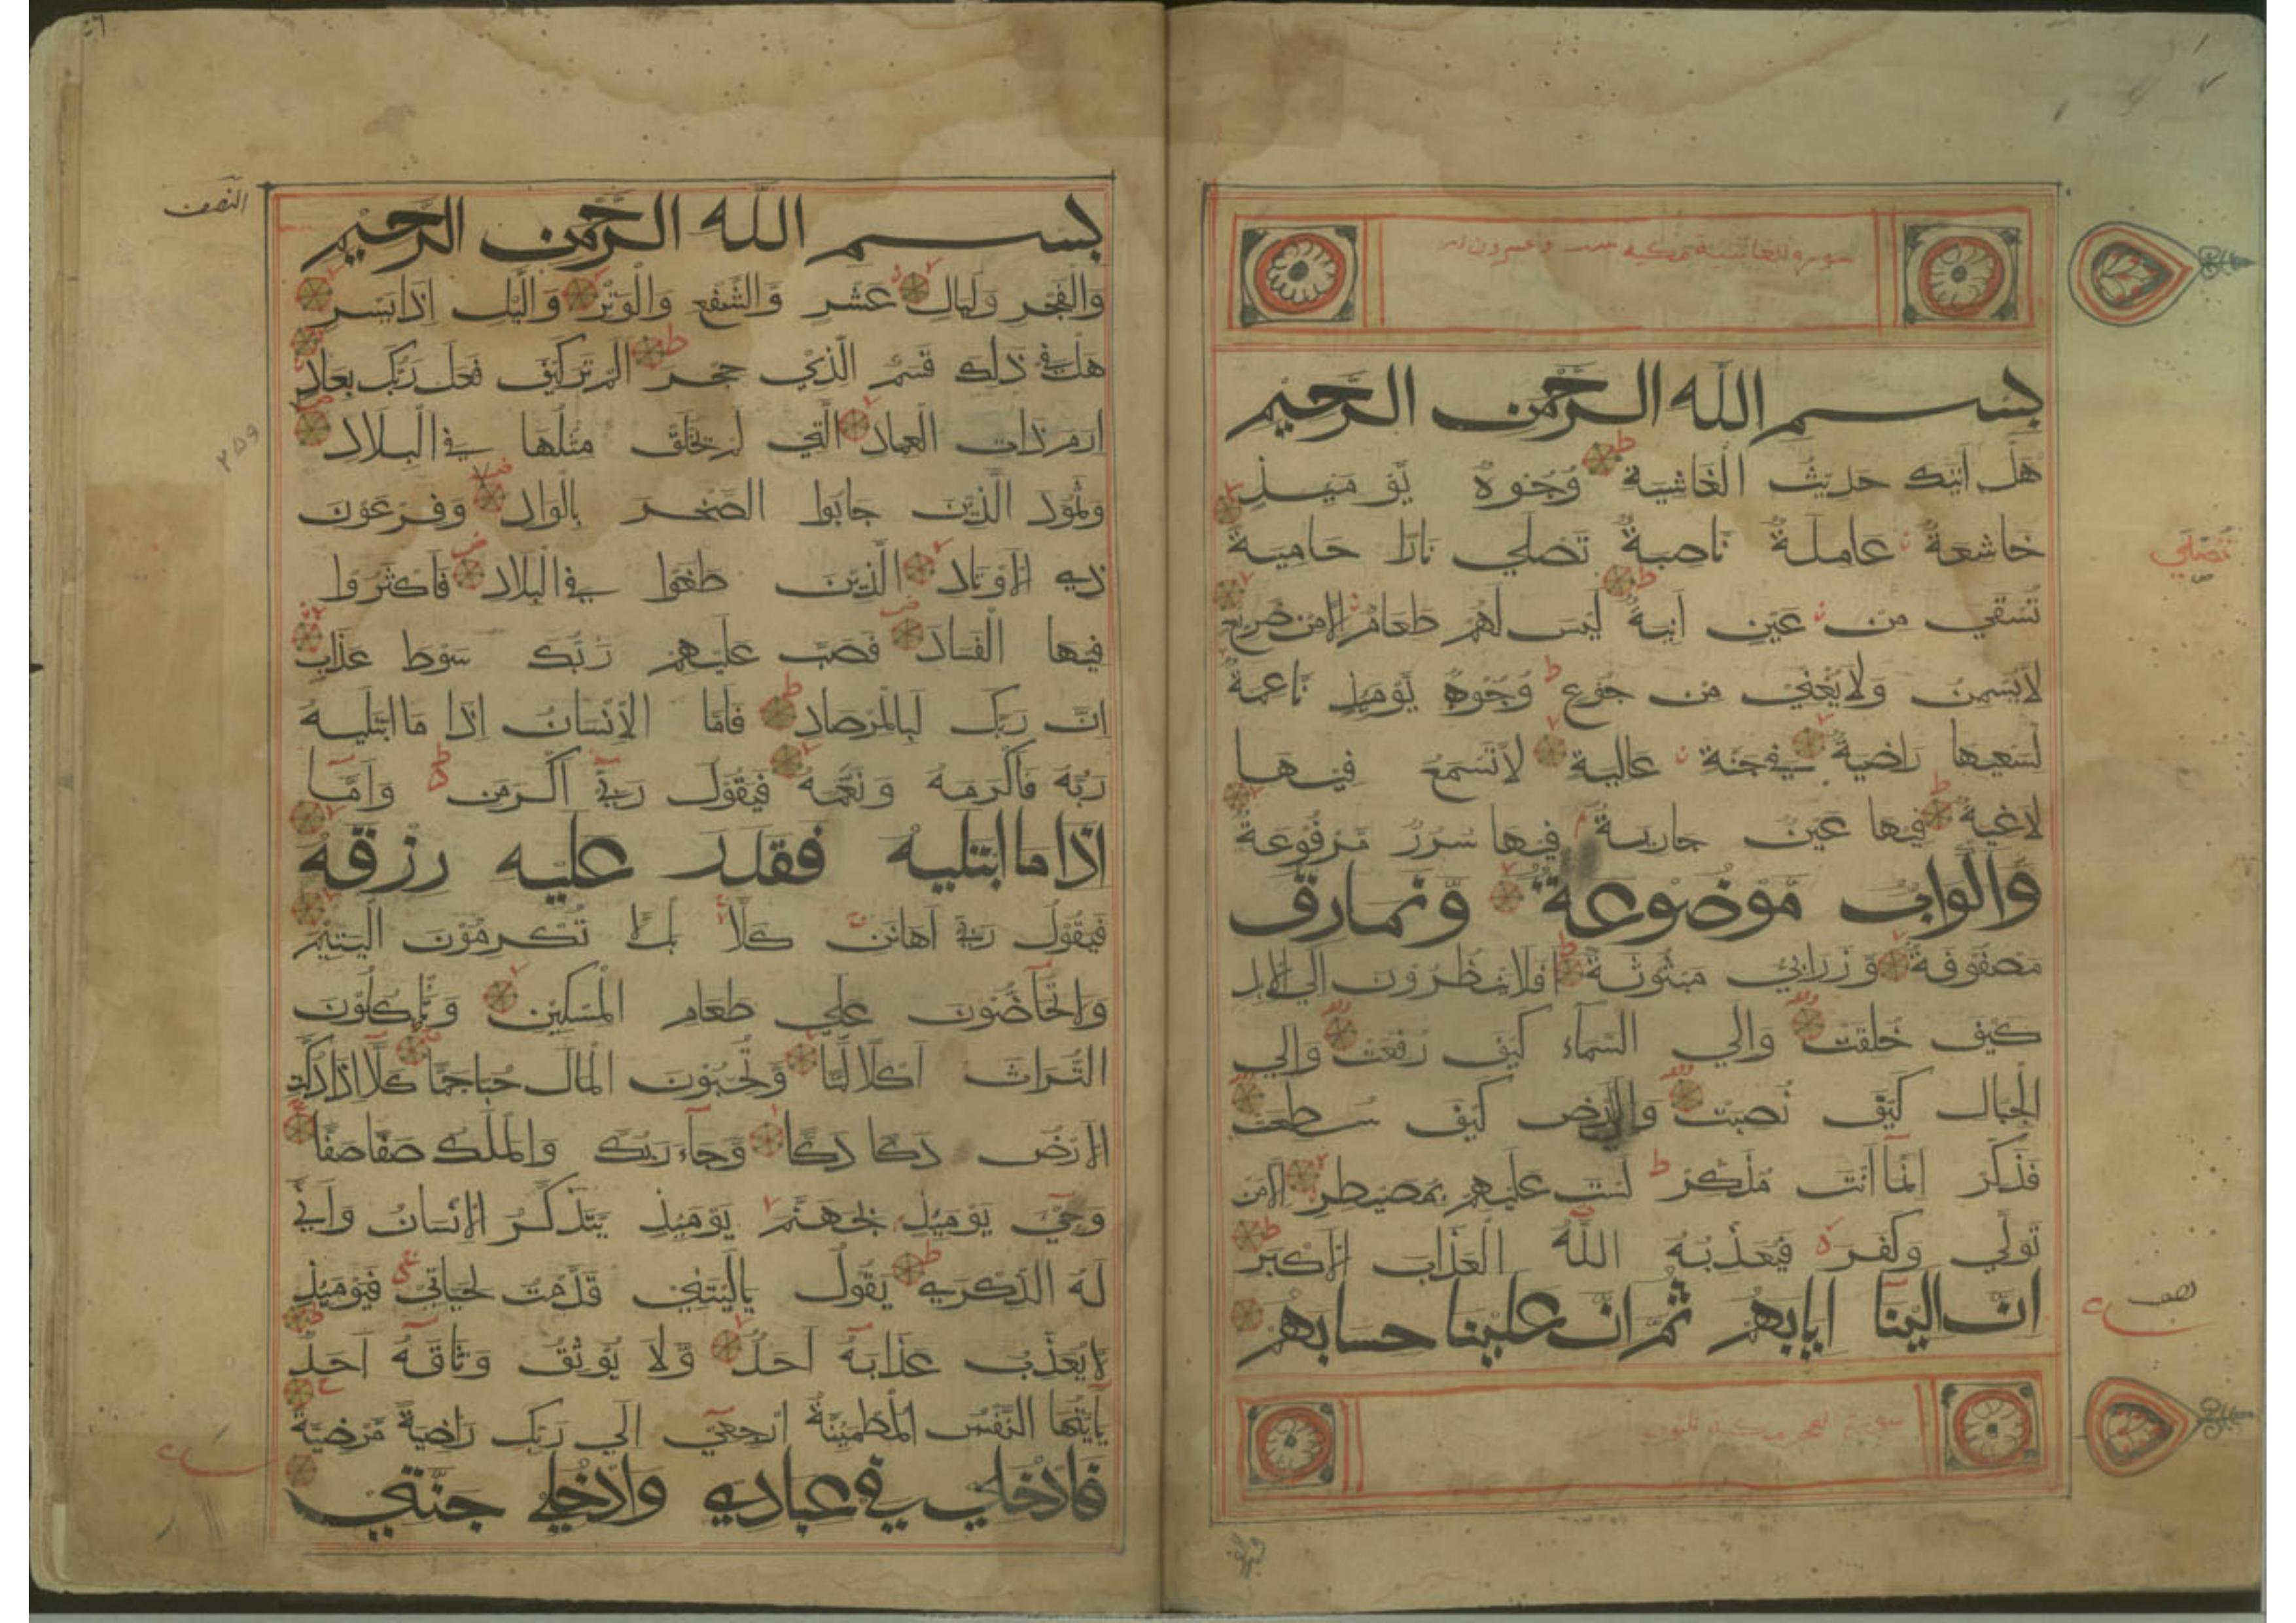 سورة الغاشية مكية ست وعشرون اية
بسم الله الرحمن الرحيم
هَلْ اَتٰيكَ حَدِيْثُ الْغَاشِيَةِ وُجُوْهٌ يَّوْمَئِذٍ
خَاشِعَةٌ عَامِلَةٌ نَّاصِبَةٌ تَصْلٰي نَارًا حَامِيَةً
تُسْقٰي مِنْ عَيْنٍ اٰنِيَةٍ لَيْسَ لَهُمْ طَعَامٌ اِلَّا مِنْ ضَرِيْعٍ
لَا يُسْمِنُ وَلَا يُغْنِيْ مِنْ جُوْعٍ وُجُوْهٌ يَّوْمَئِذٍ نَّاعِمَةٌ
لِسَعْيِهَا رَاضِيَةٌ فِيْ جَنَّةٍ عَالِيَةٍ لَا تَسْمَعُ فِيْهَا
لَاغِيَةً فِيْهَا عَيْنٌ جَارِيَةٌ فِيْهَا سُرُرٌ مَّرْفُوْعَةٌ
وَاَكْوَابٌ مَّوْضُوْعَةٌ وَّنَمَارِقُ
مَصْفُوْفَةٌ وَّزَرَابِيُّ مَبْثُوْثَةٌ اَفَلَا يَنْظُرُوْنَ اِلَي الْاِبِلِ
كَيْفَ خُلِقَتْ وَاِلَي السَّمَآءِ كَيْفَ رُفِعَتْ وَاِلَي
الْجِبَالِ كَيْفَ نُصِبَتْ وَاِلَي الْاَرْضِ كَيْفَ سُطِحَتْ
فَذَكِّرْ اِنَّمَا اَنْتَ مُذَكِّرٌ لَسْتَ عَلَيْهِمْ بِمُصَيْطِرٍ اِلَّا مَنْ
تَوَلّٰي وَكَفَرَ فَيُعَذِّبُهُ اللّٰهُ الْعَذَابَ الْاَكْبَرَ
اِنَّ اِلَيْنَا اِيَابَهُمْ ثُمَّ اِنَّ عَلَيْنَا حِسَابَهُمْ
سورة الفجر مكية ثلثون اية
تُصْلٰي
نصف
النصف
بسم الله الرحمن الرحيم
وَالْفَجْرِ وَلَيَالٍ عَشْرٍ وَّالشَّفْعِ وَالْوَتْرِ وَالَّيْلِ اِذَا يَسْرِ
هَلْ فِيْ ذٰلِكَ قَسَمٌ لِّذِيْ حِجْرٍ اَلَمْ تَرَ كَيْفَ فَعَلَ رَبُّكَ بِعَادٍ
اِرَمَ ذَاتِ الْعِمَادِ الَّتِيْ لَمْ يُخْلَقْ مِثْلُهَا فِي الْبِلَادِ
وَثَمُوْدَ الَّذِيْنَ جَابُوا الصَّخْرَ بِالْوَادِ وَفِرْعَوْنَ
ذِي الْاَوْتَادِ الَّذِيْنَ طَغَوْا فِي الْبِلَادِ فَاَكْثَرُوْا
فِيْهَا الْفَسَادَ فَصَبَّ عَلَيْهِمْ رَبُّكَ سَوْطَ عَذَابٍ
اِنَّ رَبَّكَ لَبِالْمِرْصَادِ فَاَمَّا الْاِنْسَانُ اِذَا مَا ابْتَلٰيهُ
رَبُّهٗ فَاَكْرَمَهٗ وَنَعَّمَهٗ فَيَقُوْلُ رَبِّيْ اَكْرَمَنِ وَاَمَّا
اِذَا مَا ابْتَلٰيهُ فَقَدَرَ عَلَيْهِ رِزْقَهٗ
فَيَقُوْلُ رَبِّيْ اَهَانَنِ كَلَّا بَلْ لَّا تُكْرِمُوْنَ الْيَتِيْمَ
وَلَا تَحَآضُّوْنَ عَلٰي طَعَامِ الْمِسْكِيْنِ وَتَاْكُلُوْنَ
التُّرَاثَ اَكْلًا لَّمًّا وَّتُحِبُّوْنَ الْمَالَ حُبًّا جَمًّا كَلَّا اِذَا دُكَّتِ
الْاَرْضُ دَكًّا دَكًّا وَّجَآءَ رَبُّكَ وَالْمَلَكُ صَفًّا صَفًّا
وَجِيْٓءَ يَوْمَئِذٍ بِجَهَنَّمَ يَوْمَئِذٍ يَّتَذَكَّرُ الْاِنْسَانُ وَاَنّٰي
لَهُ الذِّكْرٰي يَقُوْلُ يَالَيْتَنِيْ قَدَّمْتُ لِحَيَاتِيْ فَيَوْمَئِذٍ
لَّا يُعَذِّبُ عَذَابَهٗ اَحَدٌ وَّلَا يُوْثِقُ وَثَاقَهٗ اَحَدٌ
يٰاَيَّتُهَا النَّفْسُ الْمُطْمَئِنَّةُ ارْجِعِيْ اِلٰي رَبِّكِ رَاضِيَةً مَّرْضِيَّةً
فَادْخُلِيْ فِيْ عِبَادِيْ وَادْخُلِيْ جَنَّتِيْ
٢٥٩